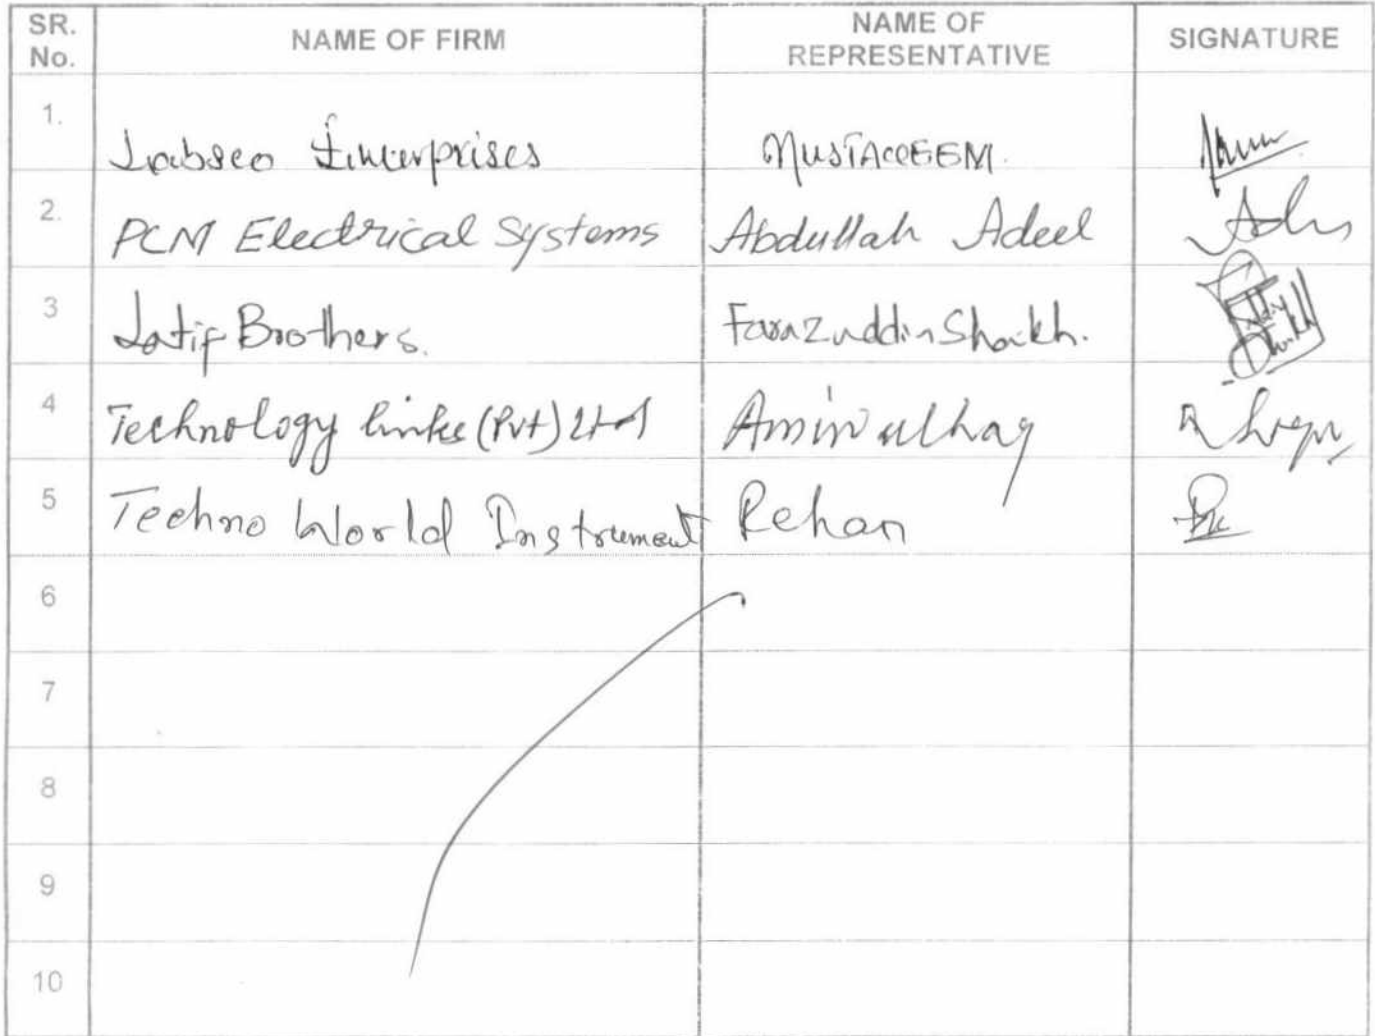 SR. No. NAME OF FIRM NAME OF REPRESENTATIVE SIGNATURE
1. Labsco Enterprises MUSTAQEEM.
2. PCM Electrical Systems Abdullah Adeel
3 Latif Brothers. Farazuddin Shaikh.
4 Technology links (Pvt) Ltd Amin ulhaq
5 Techno World Instrument Rehan
6
7
8
9
10